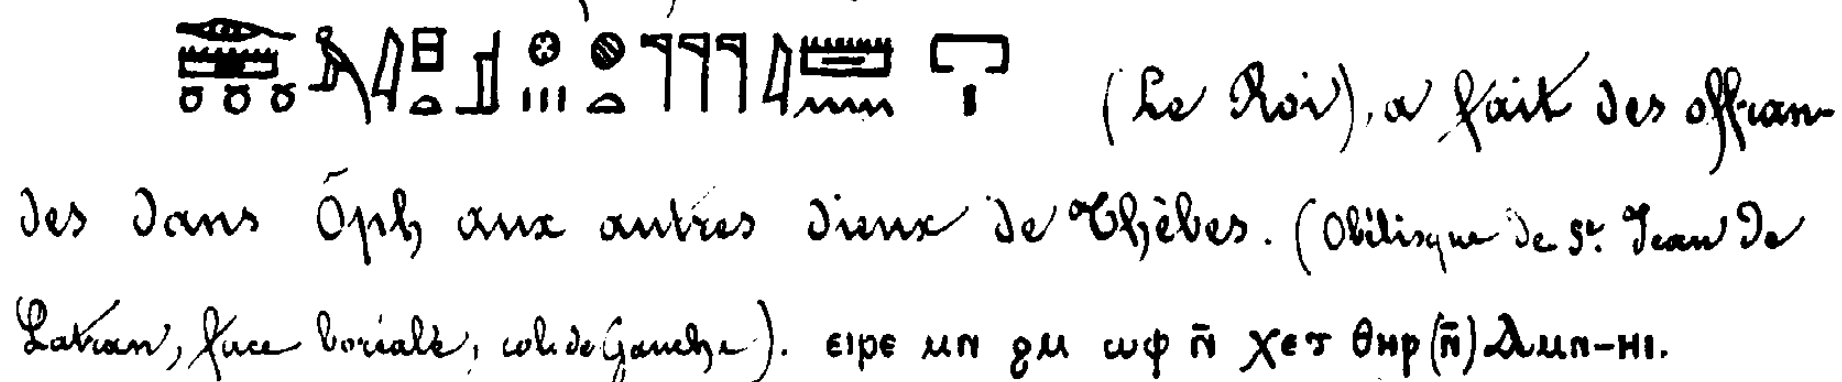 (Le Roi), a fait des offran-
des dans Ôph aux autres dieux de Thèbes. (Obélisque de St. Jean de
Latran, face boréale, col. de Gauche). ⲉⲓⲣⲉ ⲙⲛ ϩⲙ ⲱⲫ ⲛ̄ ⲭⲉⲧ ⲑⲏⲣ (ⲛ̄) ⲁⲙⲛ-ⲏⲓ.